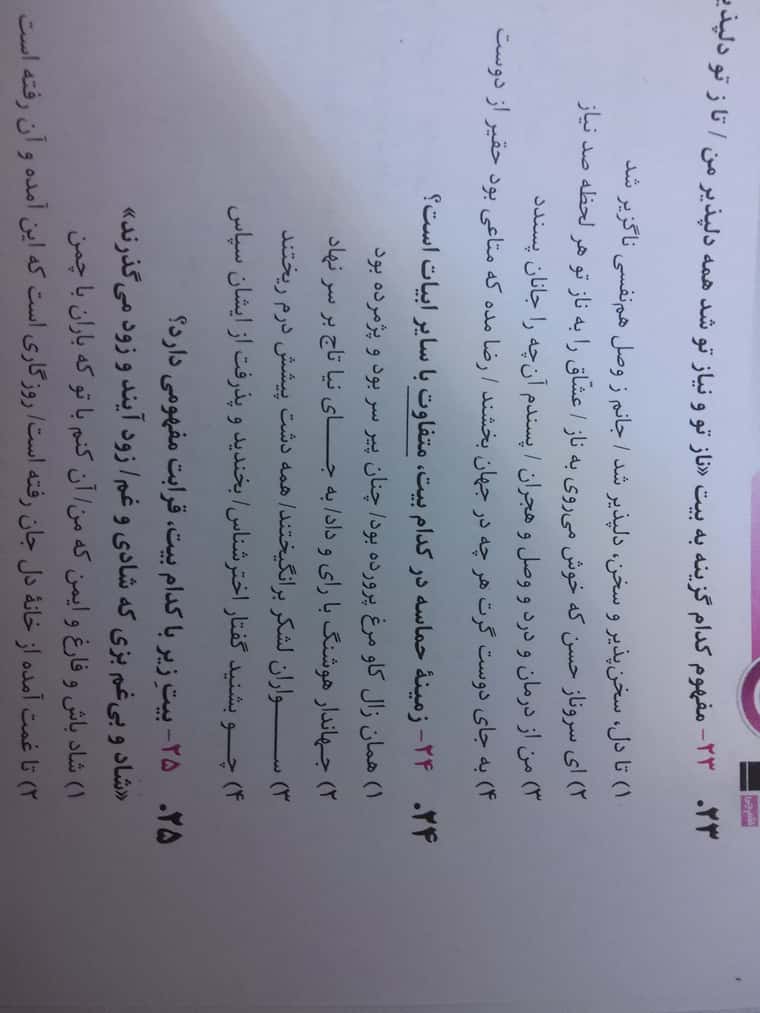 ۲۳. ۲۳- مفهوم کدام گزینه به بیت «ناز تو و نیاز تو شد همه دلپذیر من / تا ز تو دلپذیر
۱) تا دل، سخن‌پذیر و سخن، دلپذیر شد / جانم ز وصل هم‌نفسی ناگزیر شد
۲) ای سروناز حسن که خوش می‌روی به ناز / عشّاق را به ناز تو هر لحظه صد نیاز
۳) من از درمان و درد و وصل و هجران / پسندم آن‌چه را جانان پسندد
۴) به جای دوست گرت هر چه در جهان بخشند / رضا مده که متاعی بود حقیر از دوست
۲۴. ۲۴- زمینهٔ حماسه در کدام بیت، متفاوت با سایر ابیات است؟
۱) همان زال کاو مرغ پرورده بود/ چنان پیر سر بود و پژمرده بود
۲) جهاندار هوشنگ با رای و داد/ به جای نیا تاج بر سر نهاد
۳) سواران لشکر برانگیختند/ همه دشت پیشش درم ریختند
۴) چو بشنید گفتار اخترشناس/ بخندید و پذرفت از ایشان سپاس
۲۵. ۲۵- بیت زیر با کدام بیت، قرابت مفهومی دارد؟
«شاد و بی‌غم بزی که شادی و غم/ زود آیند و زود می‌گذرند»
۱) شاد باش و فارغ و ایمن که من/ آن کنم با تو که باران با چمن
۲) تا غمت آمده از خانهٔ دل جان رفته است/ روزگاری است که این آمده و آن رفته است